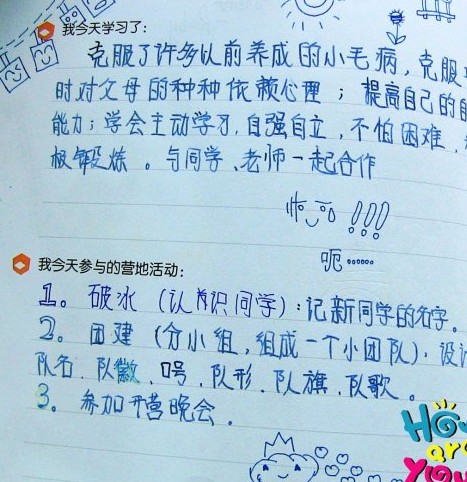 我今天学习了：
克服了许多以前养成的小毛病，克服
时对父母的种种依赖心理；提高自己的自
能力；学会主动学习，自强自立，不怕困难，
极锻炼。与同学、老师一起合作
!!!
呃……
我今天参与的营地活动：
1。破冰（认识同学）：记新同学的名字。
2。团建（分小组，组成一个小团队）．设计
队名．队徽．口号．队形．队旗．队歌。
3。参加开营晚会。
How
are
You